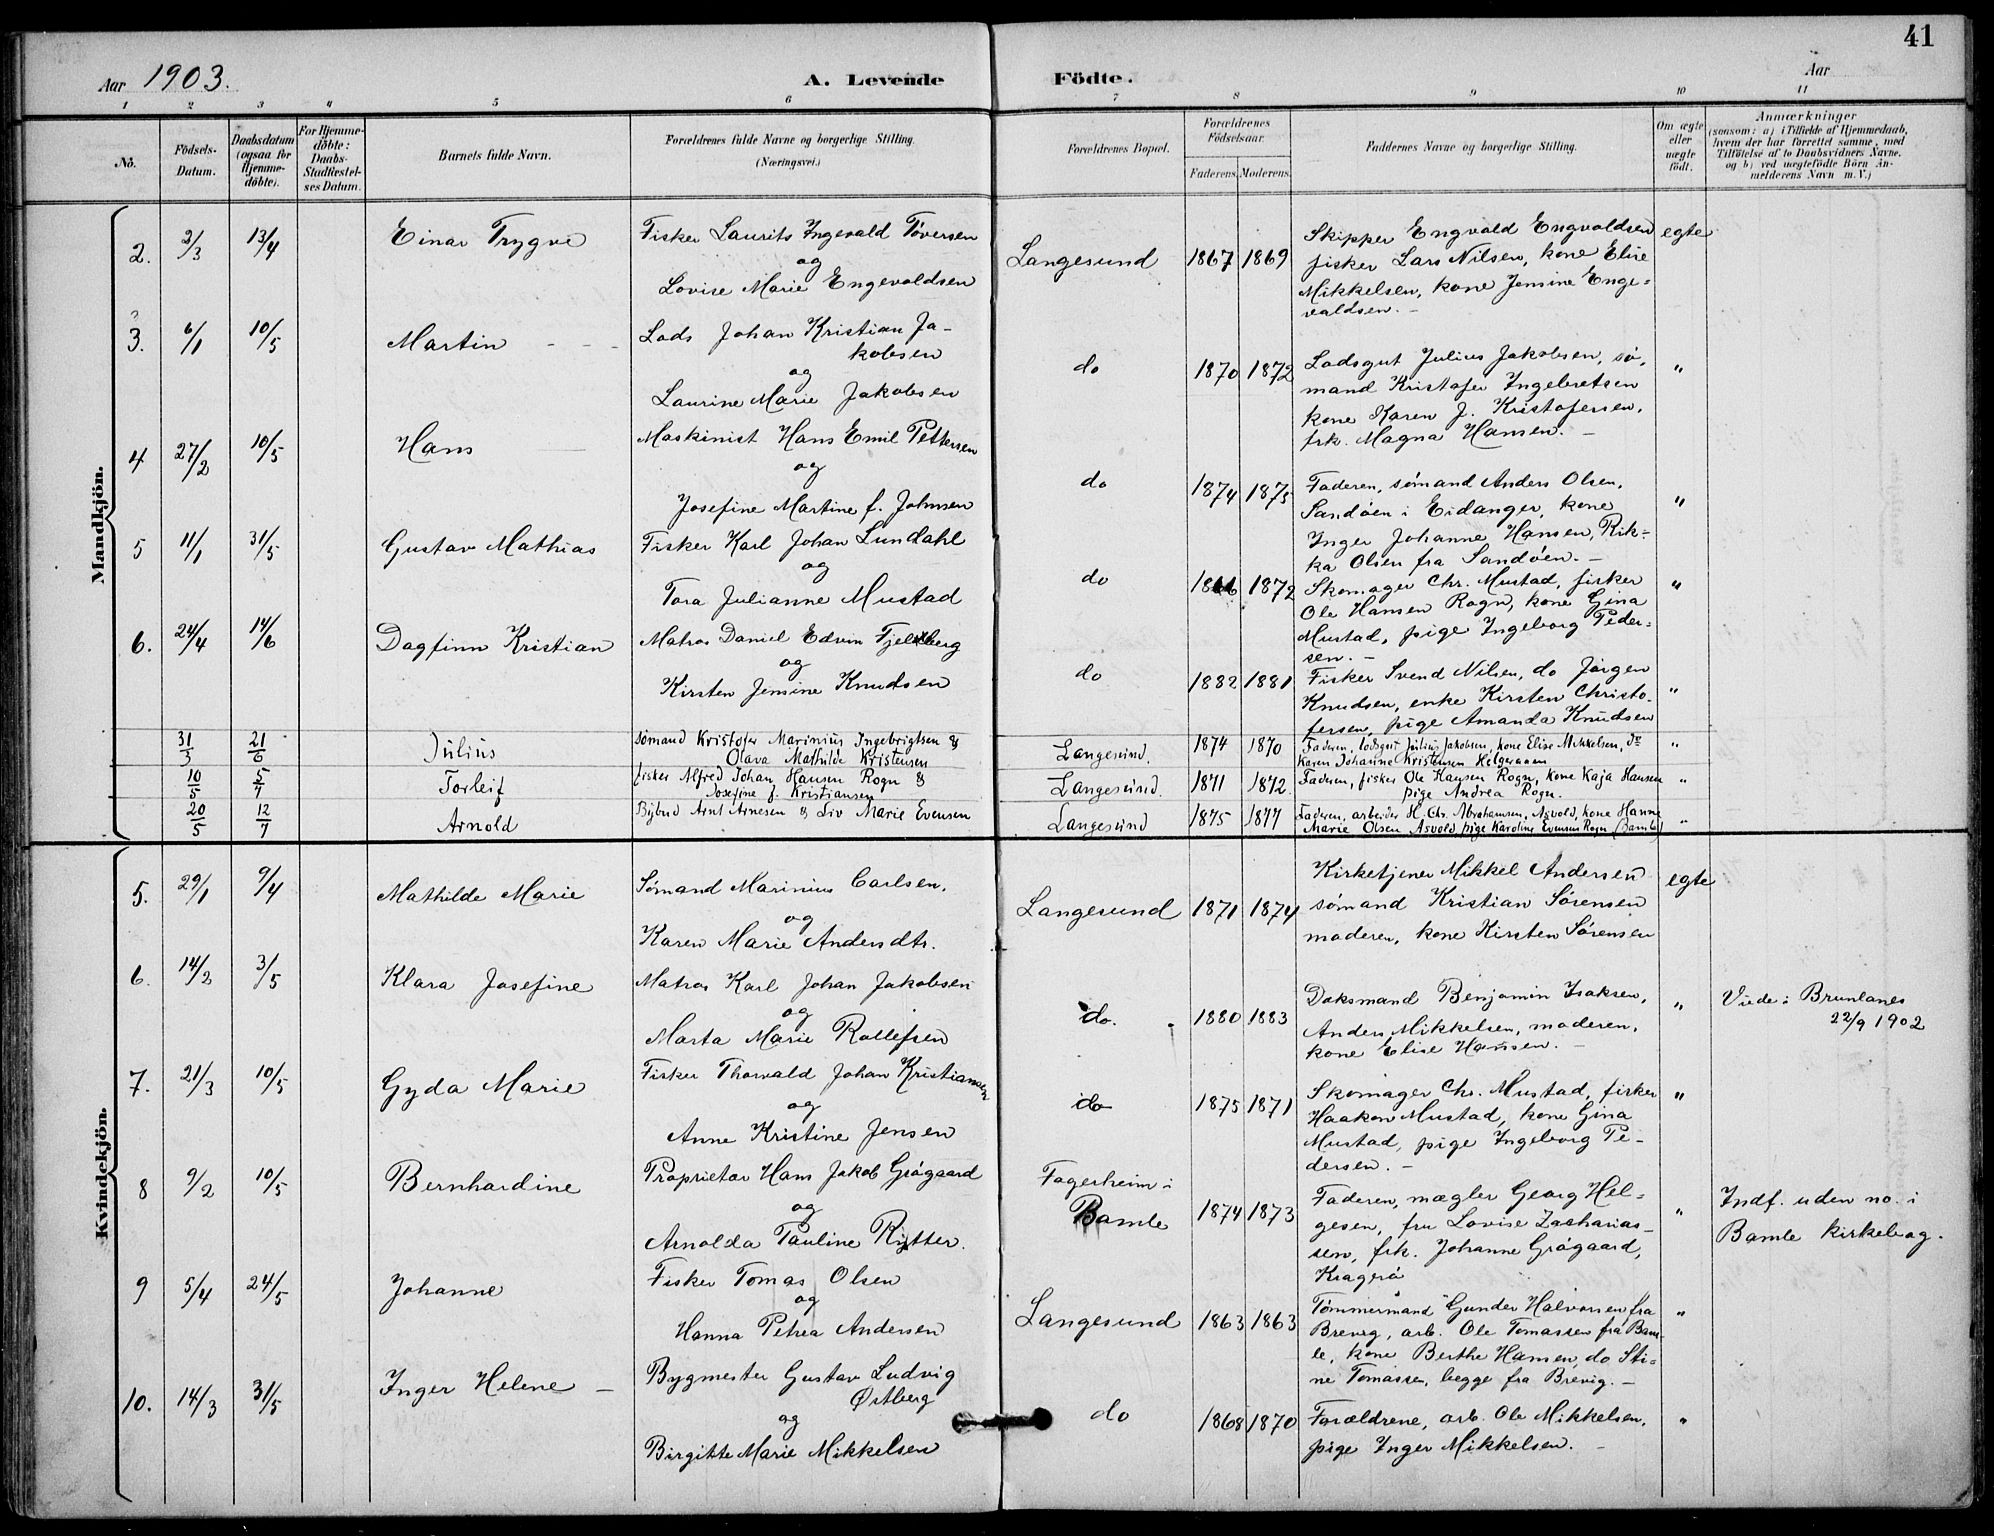 41
Aar 1903.
A. Levende Födte.
Aar
1 2 3 4 5 6 7 8 9 10 11
Nô.
Födsels-Datum.
Daabsdatum (ogsaa for Hjemme-döbte).
For Hjemme-döbte: Daabs-Stadfæstel-ses Datum.
Barnets fulde Navn.
Forældrenes fulde Navne og borgerlige Stilling. (Næringsvei.)
Forældrenes Bopæl.
Forældrenes Födselsaar.
Faderens. Moderens.
Faddernes Navne og borgerlige Stilling.
Om ægte eller uægte födt.
Anmærkninger
(saasom: a) i Tilfælde af Hjemmedaab,
hvem der har forrettet samme, med
Tilföielse af to Daabsvidners Navne.
og b) ved uægtefödte Börn An-
melderens Navn m. V.)
Mandkjön.
2. 2/3 13/4 Einar Trygve
Fisker Laurits Ingevald Tóversen
og
Lovise Marie Engevaldsen
Langesund 1867 1869
Skipper Engvald Engvaldsen
fisker Lars Nilsen, kone Elise
Mikkelsen, kone Jensine Enge=
valdsen. -
egte
3. 6/1 10/5 Martin
Lods Johan Kristian Ja-
kobsen
og
Laurine Marie Jakobsen
do 1870 1872
Lodsgut Julius Jakobsen, sø,
mand Kristofer Ingebretsen
kone Karen J. Kristofersen,
frk. Magna Hansen. -
"
4 27/2 10/5 Hans
Maskinist Hans Emil Pettersen
og
Josefine Martine f. Johnsen
do 1874 1875
Faderen, sømand Anders Olsen,
Sandöen i Eidanger, kone
Inger Johanne Hansen, Rik-
ka Olsen fra Sandöen. -
"
5 11/1 31/5 Gustav Mathias
Fisker Karl Johan Lundahl
og
Tora Julianne Mustad
do 1872
Skomager Chr. Mustad, fisker
Ole Hansen Rogn, kone Gina
Mustad, pige Ingeborg Peder=
sen. -
"
6. 24/4 14/6 Dagfinn Kristian
Matros Daniel Edvin Fjeldberg
og
Kirsten Jensine Knudsen
do 1882 1881
Fisker Svend Nilsen, do Jörgen
Knudsen, enke Kirsten Christo-
fersen, pige Amanda Knudsen
"
31/3 21/6 Julius
Sømand Kristofer Marinius Ingebrigtsen &
Olava Mathilde Kristensen
Langesund. 1874 1870
Faderen, lodsgut Julius Jakobsen, kone Elise Mikkelsen, do
Karen Johanne Kristensen Helgeraaen
"
10/5 5/7 Torleif
fisker Alfred Johan Hansen Rogn &
Josefine f. Kristiansen
Langesund. 1871 1872.
Faderen, fisker Ole Hansen Rogn, kone Kaja Hansen
pige Andrea Rogn.
"
20/5 12/7 Arnold
Bybud Arnt Arnesen & Liv Marie Evensen
Langesund 1875 1877
Faderen, arbeider H. Chr. Abrahamsen, Asvold, kone Hanna
Marie Olsen Asvold, pige Karoline Evensen Rogn (Bamle)
"
Kvindekjön.
5. 29/1 9/4 Mathilde Marie
Sømand Marinius Carlsen.
og
Karen Marie Andersdtr.
Langesund 1871 1874
Kirketjener Mikkel Andersen
sømand Kristian Sörensen
moderen, kone Kirsten Sörensen
egte
6. 14/2 3/5 Klara Josefine
Matros Karl Johan Jakobsen
og
Marta Marie Rollefsen
do. 1880 1883
Doksmand Benjamin Isaksen,
Anders Mikkelsen, moderen,
kone Elise Hansen. -
"
Viede i Brunlanes
22/9 1902
7. 21/3 10/5 Gyda Marie
Fisker Thorvald Johan Kristiansen
og
Anne Kristine Jensen
do 1875 1871
Skomager Chr. Mustad, fisker
Haakon Mustad, kone Gina
Mustad, pige Ingeborg Pe-
dersen. -
"
8 9/2 10/5 Bernhardine
Proprietær Hans Jakob Grógaard
og
Arnolda Pauline Rytter.
Fagerheim i
Bamle 1874 1873
Faderen, mægler Georg Hel=
gesen, fru Lovise Zacharias-
sen, frk. Johanne Grógaard,
Kragerö
"
Indf. uden no. i
Bamle kirkebog.
9 5/4 24/5 Johanne
Fisker Tomas Olsen
og
Hanna Petrea Andersen
Langesund 1863 1863
Tömmermand Gunder Halvorsen fra
Brevig, arb. Ole Tomassen fra Bam-
le, kone Berthe Hansen, do Sti=
ne Tomassen, begge fra Brevig. -
"
10. 14/3 31/5 Inger Helene -
Bygmester Gustav Ludvig
Østberg
og
Birgitte Marie Mikkelsen
do 1868 1870
Forældrene, arb. Ole Mikkelsen,
pige Inger Mikkelsen. -
"